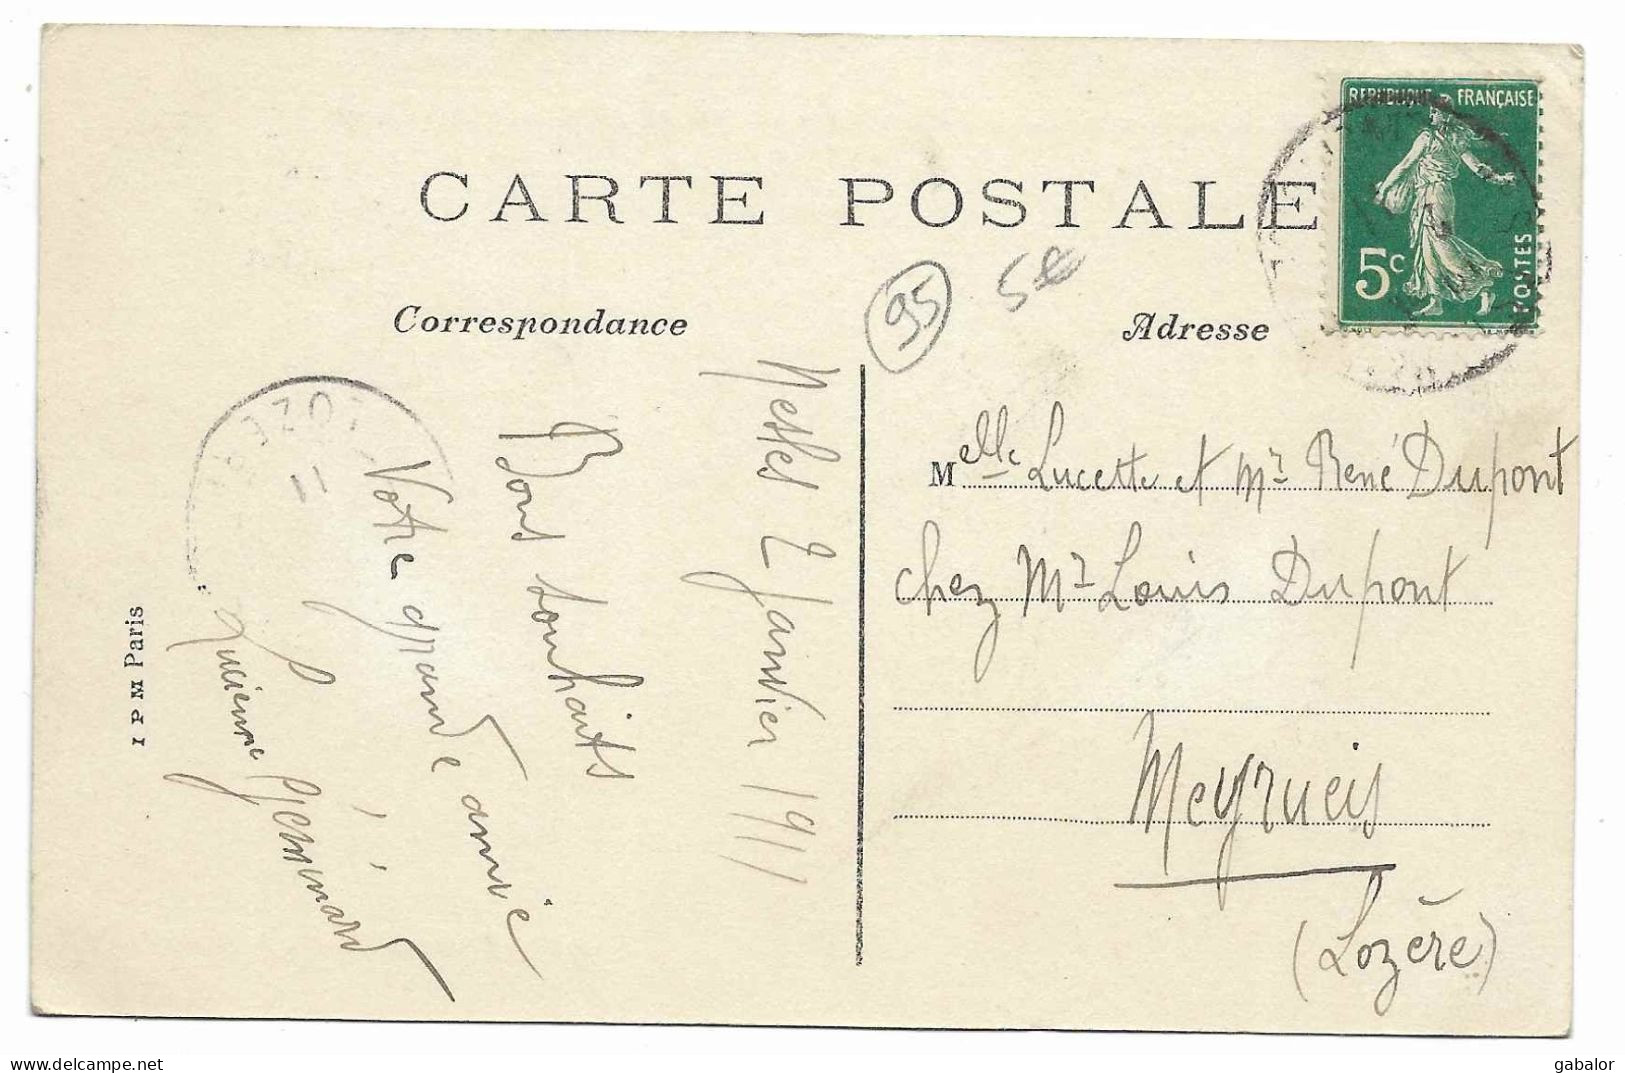 CARTE POSTALE
Correspondance
Adresse
95
5€
REPUBLIQUE FRANÇAISE
5c
POSTES
Nesles 2 Janvier 1911
Bons souhaits
Votre grande amie
Lucienne Gémínard
Melle Lucette et Mr René Dupont
chez Mr Louis Dupont
Meyrueis
(Lozère)
I P M Paris
LOZERE
11
delcampe.net
gabalor